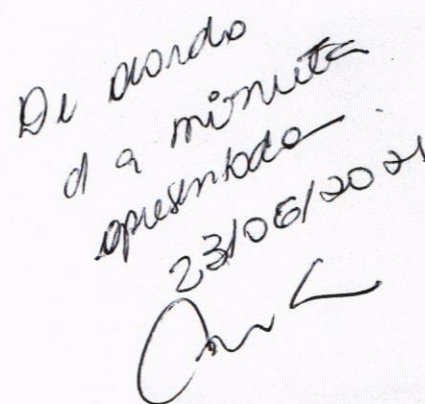 De acordo
c/ a minuta
apresentada
23/06/2021